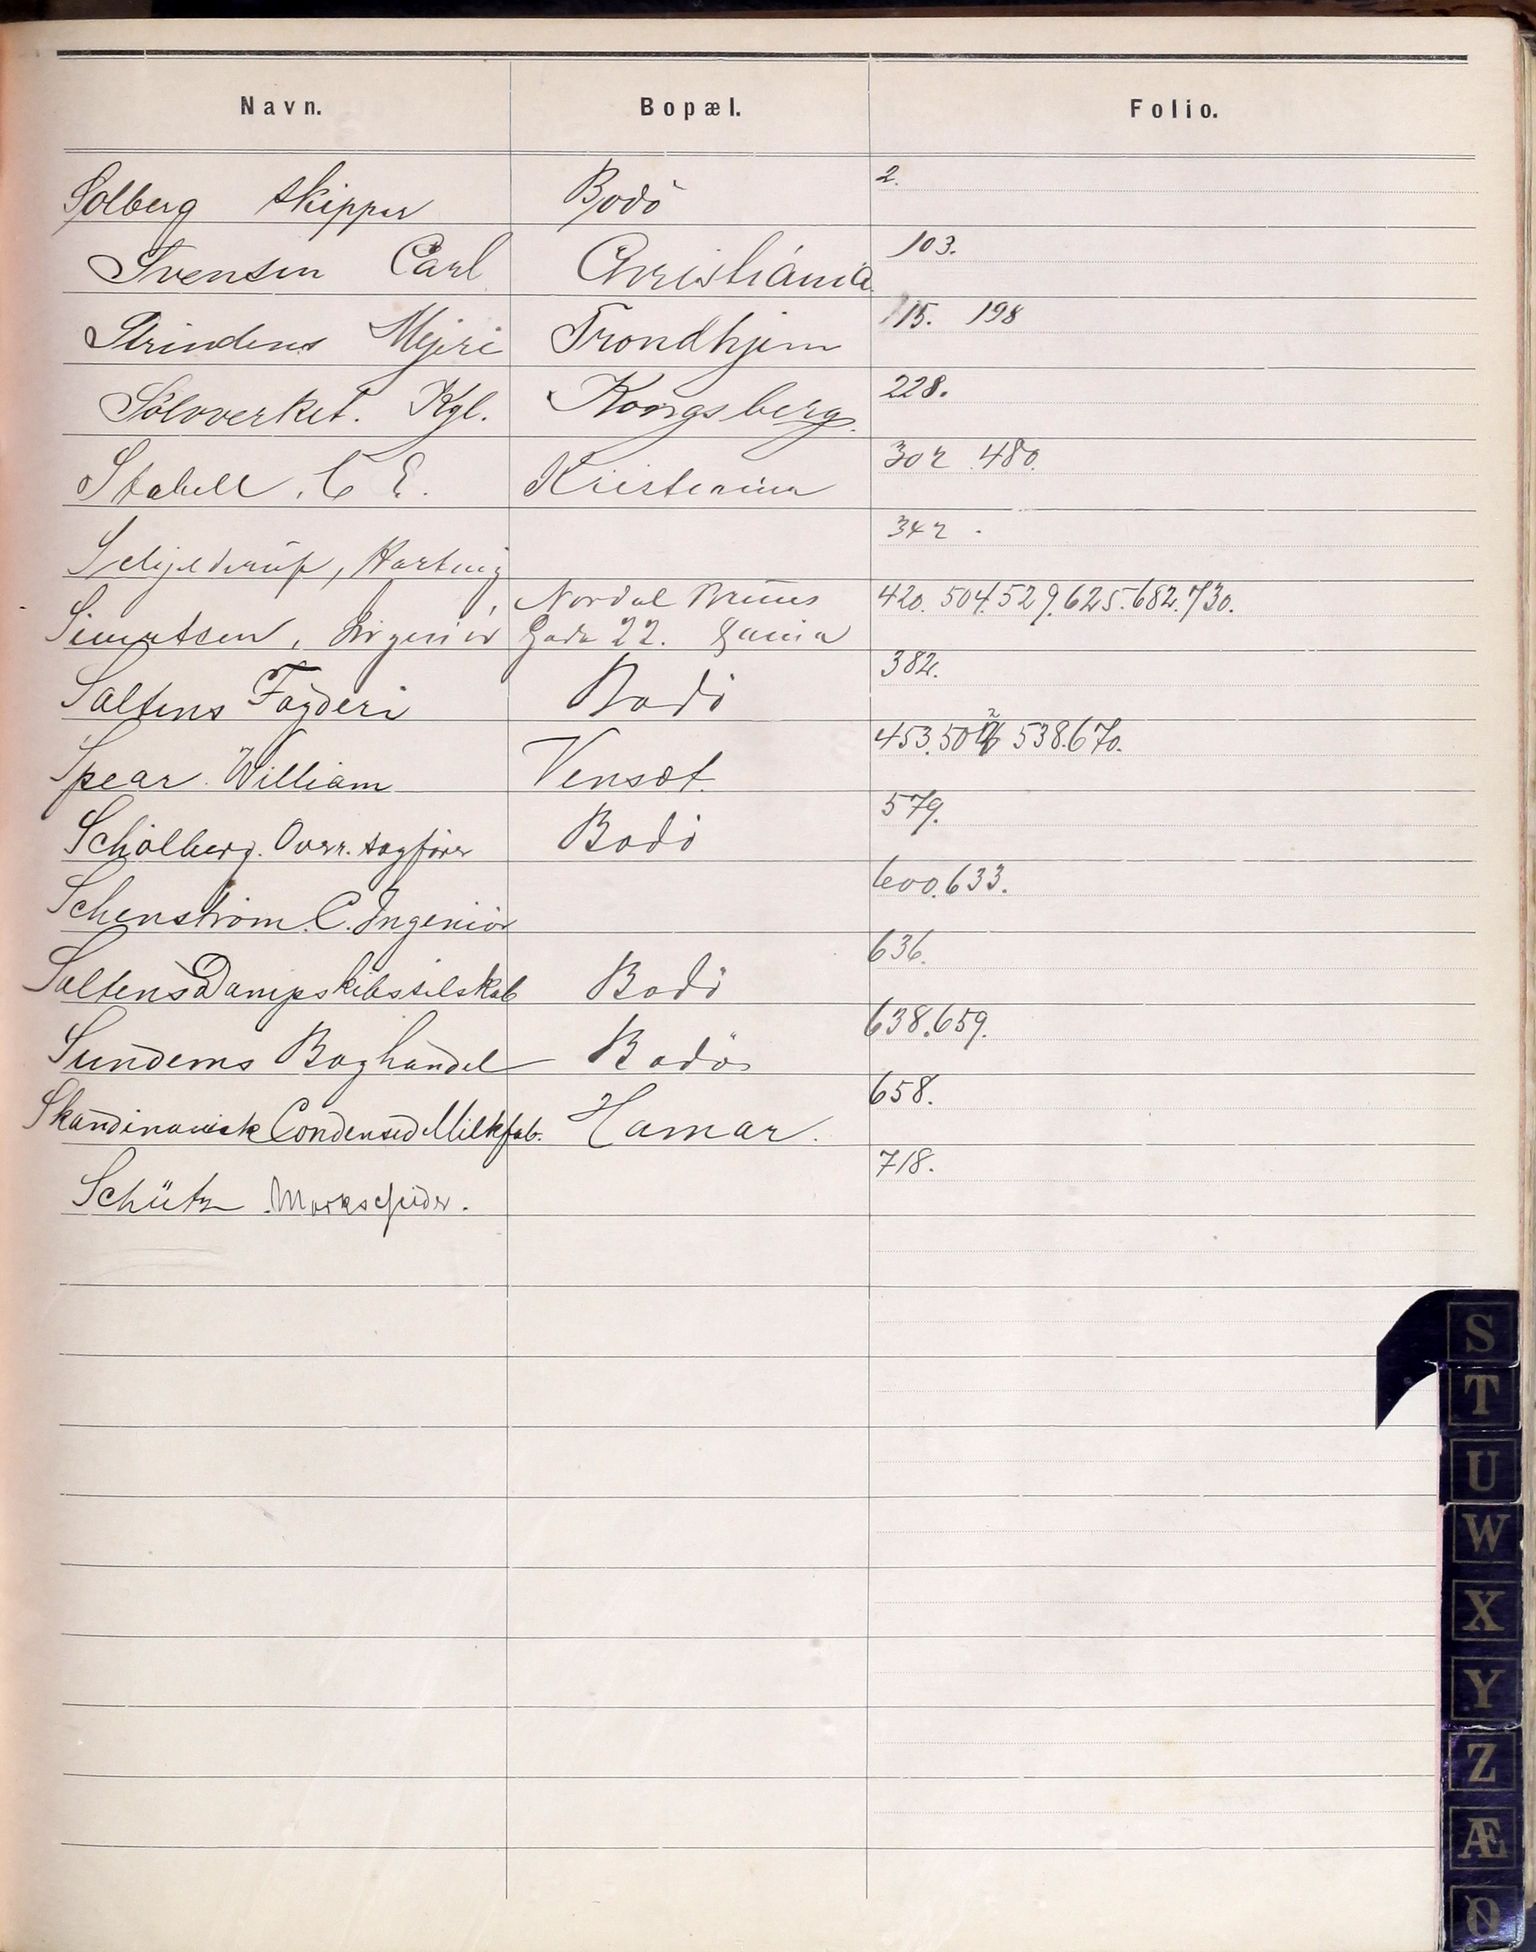 Navn. Bopæl. Folio.
Solberg skipper Bodö 2.
Svensen Carl Christiania 103.
Strindens Mejeri Trondhjem 115. 198
Sölvverket. Kgl. Kongsberg. 228.
Stabell, C E. Kristiania 302 480.
Schjelderup, Hartvig 342.
Nordal Bruns
Sivertsen, Ingeniör Gade 22. Xania 420. 504. 529. 625. 682. 730.
Saltens Fogderi Bodö 382.
Spear. William Venset. 453. 502 538. 670.
Schölberg. Overr. sagförer Bodö 579.
Schenström. C. Ingeniör 600. 633.
Saltens Dampskibsselskab Bodö 636.
Sundems Boghandel Bodö 638. 659.
Skandinavisk Condensed Milkfab. Hamar. 658.
Schütz Markscheider. 718.
S
T
U
W
X
Y
Z
Æ
Ø